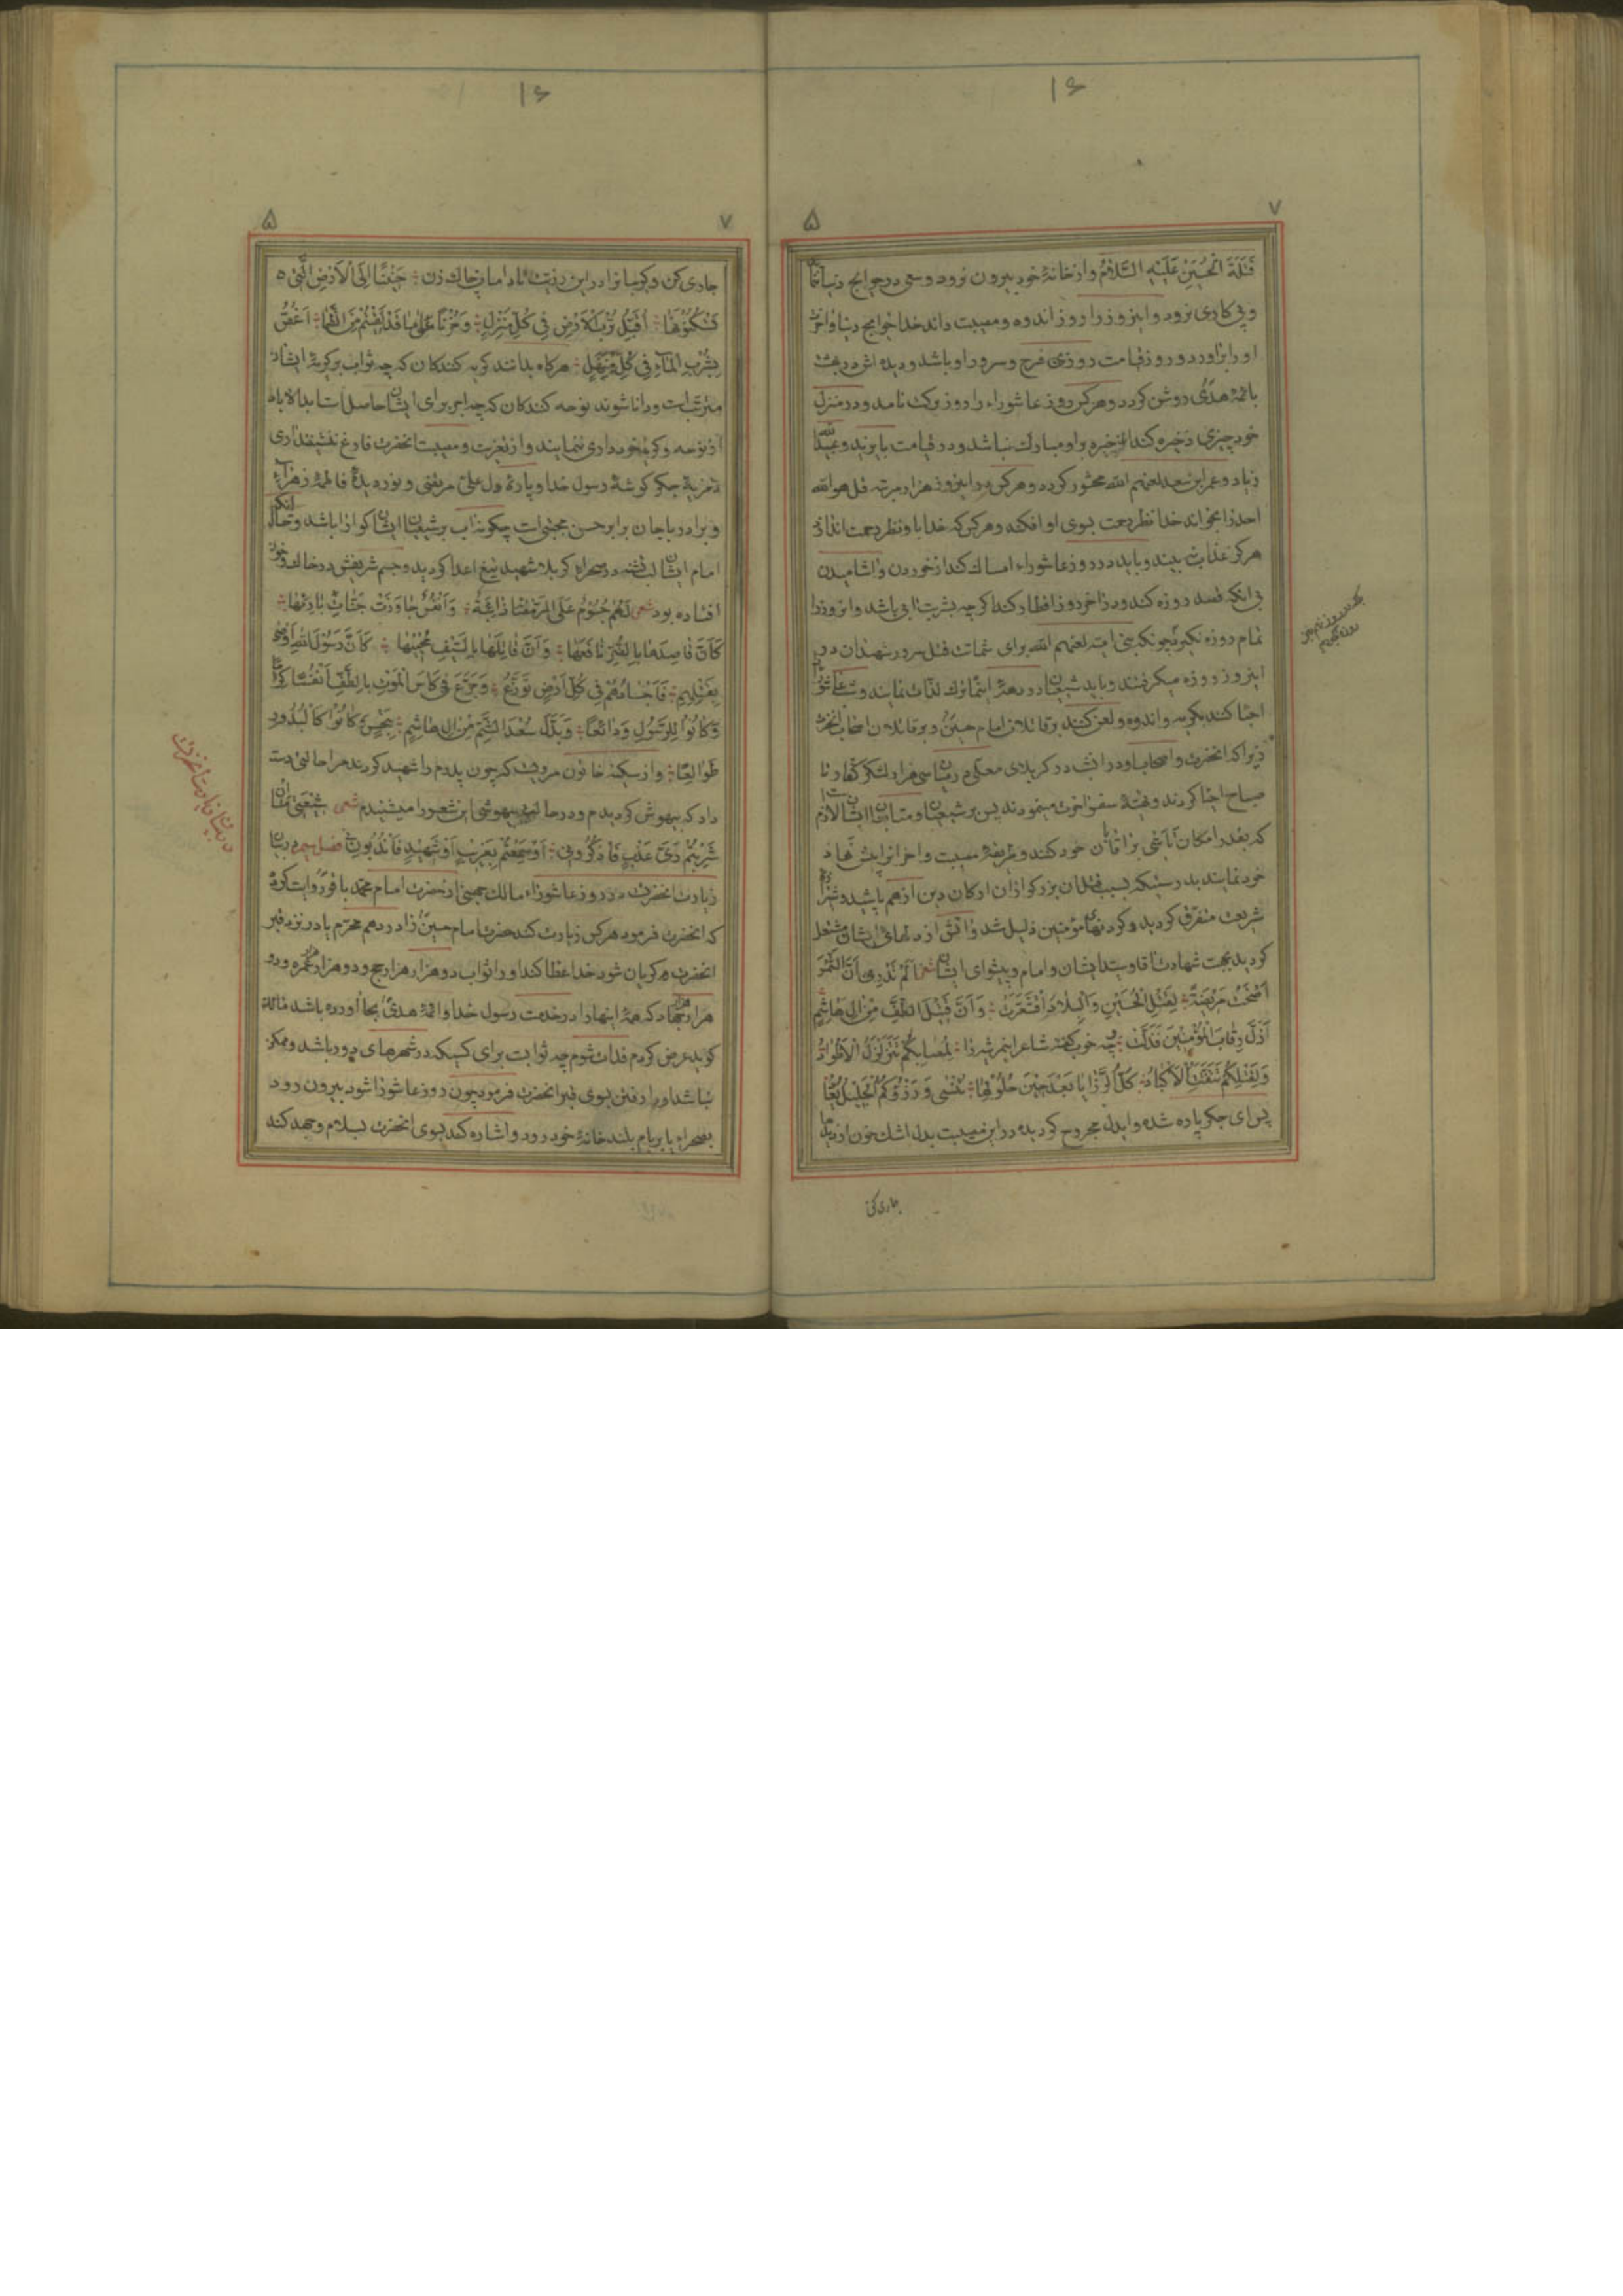 ۱۶
۷
۵
قَتَلَةَ الْحُسَیْنِ عَلَیْهِ السَّلَامُ و از خانهٔ خود بیرون نرود و سعی در حوایج دنیا
و پی کاری نرود و این روز را روز اندوه و مصیبت داند خدا حوایج دنیا و آخرت
او را براورد و روز قیامت روزی فرح و سرور او باشد و دیده اش در بهشت
بائمهٔ هدی روشن کردد و هر کس روز عاشوراء را روز برکت نامد و در منزل
خود چیزی ذخیره کند ذخیره بر او مبارک نباشد و در قیامت با یزید و عبیدالله
زیاد و عمر ابن سعد لعنهم الله محشور کردد و هر کس در این روز هزار مرتبه قل هو الله
احد را بخواند خدا نظر رحمت بسوی او افکند و هر کس که خدا باو نظر رحمت اندازد
هرکز عذاب نه بیند و باید در روز عاشوراء امساک کند از خوردن و اشامیدن
بی انکه قصد روزه کند و در اخر روز افطار کند اکرچه بشربت ابی باشد و انروز را
تمام روزه نکیرد چونکه بنی امیه لعنهم الله برای شماتت قتل سرور شهیدان در
این روز روزه میکرفتند و باید شیعیان در دههٔ ترک لذات نمایند و شب عاشورا
احیا کنند بکریه و اندوه و لعن کنند بر قاتلان امام حسین و بر قاتلان اصحاب انحضرت
زیرا که انحضرت و اصحاب او در انشب در کربلای معلی در میان سی هزار لشکر کفار تا
صباح احیا کردند و تهیهٔ سفر اخرت مینمودند پس بر شیعیان و متابعان ایشان لازم
که بقدر امکان تاسی براقایان خود کنند و طریقهٔ مصیبت و احزان پیش نهاد
خود نمایند بدرستیکه بسبب قتل ان بزرکواران ارکان دین از هم پاشید و
شریعت متفرق کردید و کردنهای مؤمنین ذلیل شد و اتش از دلهای ایشان مشتعل
کردید بجهت شهادت اقا و سید ایشان و امام و پیشوای ایشان شعر اَلَمْ تَدْرِی اَنَّ الشَّمْسَ
اَضْحَتْ مَرِیضَةً لِقَتْلِ الْحُسَیْنِ وَالْبِلَادُ اقْشَعَرَّتْ وَاَنَّ قَتِیلَ الطَّفِّ مِنْ اٰلِ هَاشِمٍ
اَذَلَّ رِقَابَ الْمُؤْمِنِینَ فَذَلَّتْ چه خوب کفته شاعر این مرثیه را لِمُصَابِکُمْ تَتَزَلْزَلُ الْاَطْوَادُ
وَلِقَتْلِکُمْ تَتَفَتَّتُ الْاَکْبَادُ کُلُّ الرَّزَایَا بَعْدَ حِینَ حُلُولِهَا تُنْسٰی وَ رُزْؤُکُمُ الْجَلِیلُ
پس ای جکر پاره شده و ایدل مجروح کردیده در این مصیبت بدل اشک خون از
جاری کن
۱۶
۷
۵
جاری کن و کریبانرا در این رزیت تا دامان چاک زن جِئْنَا اِلَی الْاَرْضِ الَّتِی
سَکَنُوهَا اُقَبِّلُ تُرْبَ الْاَرْضِ فِی کُلِّ مَنْزِلٍ
بِشُرْبِ الْمَآءِ فِی کُلِّ مَنْهَلٍ هرکاه بدانند کریه کنندکان که چه ثواب بر کریهٔ ایشان
مترتبست و دانا شوند نوحه کنندکان که چه اجر برای ایشان حاصلست ابدالاباد
از نوحه و کریه خودداری ننمایند و از تعزیت و مصیبت انحضرت فارغ ننشینند اری
تعزیهٔ جکر کوشهٔ رسول خدا و پارهٔ دل علی مرتضی و نور دیدهٔ فاطمهٔ زهراء
و برادر باجان برابر حسن مجتبی است چکونه اب بر شیعیان ایشان کوارا باشد و حال انکه
امام ایشان لب تشنه در صحراء کربلا شهید تیغ اعدا کردید و جسم شریفش در خاک و خون
افتاده بود شعر لَهُمْ جُسُومٌ عَلَی الرَّمْضَاءِ ذَائِبَةٌ وَاَنْفُسٌ جَاوَرَتْ جَنَّاتِ بَارِئِهَا
کَاَنَّ قَاصِدَهَا بِالضُّرِّ نَافِعُهَا وَ اَنَّ قَاتِلَهَا بِالسَّیْفِ مُحْیِیهَا کَاَنَّ رَسُولَ اللهِ اَوْصٰی
بِقَتْلِهِمْ فَاَجْسَادُهُمْ فِی کُلِّ اَرْضٍ تَوَزَّعُ وَ جَرَّعَ فِی کَاسَ الْمَوْتِ بِالطَّفِّ اَنْفُسًا
وَ کَانُوا لِلرَّسُولِ وَدَائِعًا وَ بَدَّلَ سُعْدَ الشَّمِّ مِنْ اٰلِ هَاشِمٍ بِنَحْسٍ کَانُوا کَالْبُدُورِ
طَوَالِعًا و از سکینه خاتون مرویست که چون پدرم را شهید کردند مرا حالتی دست
داد که بیهوش کردیدم و در حالت بیهوشی این شعر را میشنیدم شعر شِیعَتِی مَا اِنْ
شَرِبْتُمْ رَیَّ عَذْبٍ فَاذْکُرُونِی اَوْ سَمِعْتُمْ بِغَرِیبٍ اَوْ شَهِیدٍ فَانْدُبُونِی فصل سیم در بیان
زیارت انحضرت در روز عاشوراء مالک جهنی از حضرت امام محمد باقر روایت کرده
که انحضرت فرمود هر کس زیارت کند حضرت امام حسین را در دهم محرم یا در نزد قبر
انحضرت کریان شود خدا عطا کند او را ثواب دو هزار هزار حج و دو هزار هزار عمره و دو
هزار هزار جهاد که همهٔ اینها را در خدمت رسول خدا و ائمهٔ هدی بجا آورده باشد مالک
کوید عرض کردم فدات شوم چه ثوابست برای کسیکه در شهرهای دور باشد و ممکن
نباشد او را رفتن بسوی قبر انحضرت فرمود چون روز عاشورا شود بیرون رود
بصحراء یا بر بام بلند خانهٔ خود رود و اشاره کند بسوی انحضرت بسلام و جهد کند
در بیان زیارت انحضرت